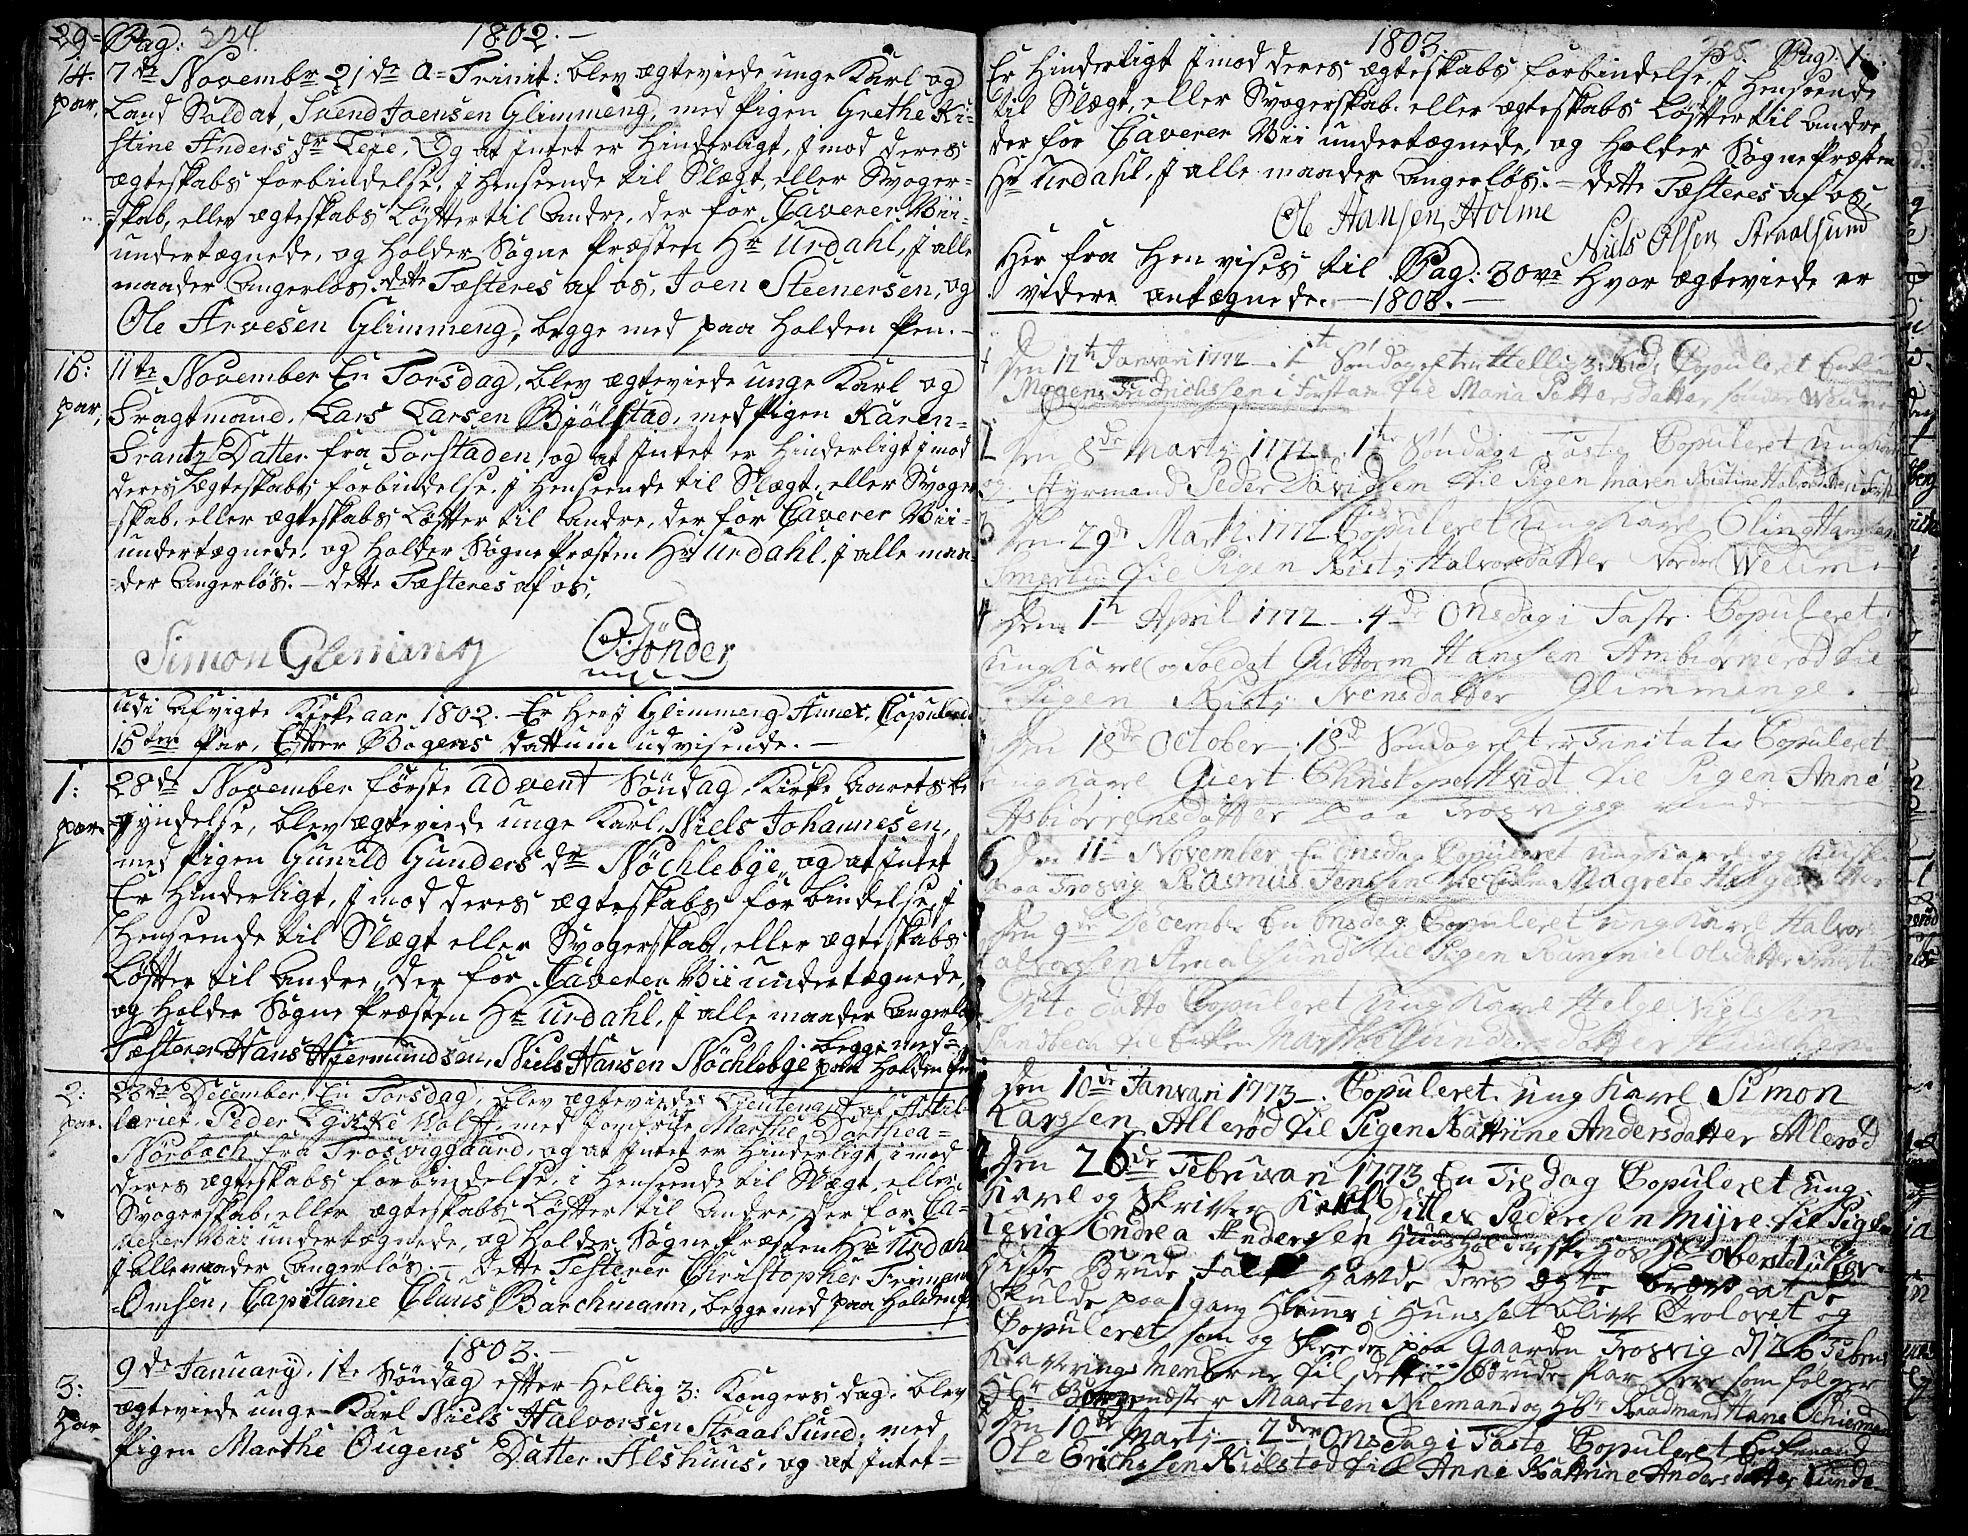 29= Pag: 224. 1802. —
14. par, 7de Novembr 21de a= Trinit: blev ægteviede unge Karl og
Land Soldat, Svend Joensen Glimmeng, med Pigen Grethe Ki=
stine Anders dr Leie, Og at Intet er Hinderligt, I mod deres
ægteskabs forbindelse, I Henseende til Slægt, eller Svoger=
=skab, eller ægteskabs Løfter til Andre, der for Caverer Vii
undertægnede, og Holder Sogne Præsten Hr Urdahl, I alle
maader Angerløs. Dette Tæsteres af os, Joen Steenersen, og
Ole Arvesen Glimmeng, begge med paa Holden Pen. —
15: par, 11te November En Torsdag, blev ægteviede unge Karl og
Dragtmand, Lars Larsen Bjölstad, med Pigen Karen=
Frantz Datter fra Forstaden, og at Intet er Hinderligt I mod
deres Ægteskabs forbindelse. I Henseende til Slægt, eller Svoger
=skab, eller ægteskabs Løfter til Andre, der for Caverer Vii
undertægnede, og Holder Sogne Præsten Hr Urdahl, I alle maa=
=der Angerløs. — Dette Tæsteres af os,
Simon Glemeng O. Sönder
Udi Afvigte Kirke aar 1802. — Er her I Glimmeng Annex, Copuleret
15ten Par, Efter Bogens Dattum udvisende. —
1: par. 28de November første Advent Søndag Kirke Aarets Be
gyndelse, blev ægteviede unge Karl, Niels Johannesen,
med Pigen Gunild Gunders dr Nöchlebye, og at Intet
Er Hinderligt, I mod deres ægteskabs forbindelse, I
Henseende til Slægt eller Svogerskab, eller ægteskabs
Løfter til Andre, der for Caverer Vii undertægnede,
og Holder Sogne Præsten Hr Urdahl, I alle maader Angerløs
Tæsterer Hans Hiermundsen, Niels Hansen Nöchlebye begge med paa Holden Pen
2: par. 28de December En Torsdag, blev ægteviede Lieutenant af Artil=
leriet, Peder Lykke Wolff, med Jomfrue Marthe Dorthea=
Nörbach fra Trosviggaard, og at Intet er Hinderligt, i mod
deres ægteskabs forbindelse, i Henseende til Slægt, eller
Svogerskab, eller ægteskabs Løfter til Andre, der for Ca=
verer Vii undertægnede, og Holder Sogne Præsten Hr Urdahl
I alle maader Angerløs. — Dette Testerer Christopher Friman
=Omsen, Capitaine Claus Barchmann, begge med paa Holden P
1803. —
3: Par 9de January, 1te Søndag efter Hellig 3: Kongers dag, blev
ægteviede unge Karl Niels Halvorsen StraalSund, med
Pigen Marthe Ougens Datter Alshuus, og at Intet=
1803. 225. Pag: 1.
Er Hinderligt I mod deres ægteskabs forbindelse, I Henseende
til Slægt, eller Svogerskab, eller ægteskabs Løfter til Andre,
der for Caverer Vii undertægnede, og Holder Sogne Præsten
Hr Urdahl, I alle maader Angerløs. — Dette Tæsteres af os,
Ole Hansen Holme
Niels Olsen Straalsund
Her fra Hen vises til Pag: 30ve Hvor ægteviede er
videre antægnede. — 1803. —
1 Den 12th Januari 1772 — 1th Søndag efter Hellig 3: Kod: Copuleret
Mogens Fridrichssen i Forstan til Maria Pettersdatter sönder
2 Den 8de Marty 1772. 1te Søndag i Faste Copuleret Ungkarl
og Styrmand Peder Davidsen til Pigen Maren Kistine Halvorsdatter
3 Den 29d Marti 1772 Copuleret Ungkarl
til Pigen Kisti Halvorsdatter Nordre
4 Den 1th April 1772 — 4de Onsdag i Faste Copuleret
Ungkarl og Soldat Guttorm Hanssen Ambiörneröd til
Pigen Kisti Svensdatter Glimminge.
Den 18de October — 18d Søndag efter Trinitatis Copuleret
ungkarl Giert Christopher Hvidt til Pigen Anne
Asbiörrensdatter Paa Trosvig
6 Den 11te November En Onsdag Copuleret ungkarl og
paa Trosvig Rasmus Jenssen til Enken Magrete
Den 9de December En Onsdag Copuleret ungkarl Halvor
Halvorssen til Pigen Rangniel Olsdatter
Dito Datto Copuleret Ungkarl Helge Nielssen
Sandbech til Enken
1 Den 10de Januari 1773 —. Copuleret ung karl Simon
Larssen Allerød til Pigen Kattrine Andersdatter Allerød
2 Den 26de Februari 1773 En Fredag Copuleret ung
karl og Skriver Ditlev Pedersen Mijre til Pigen
Lovig Endrea Anderssen Huusholderske hos Hr Oberstelieut
Disse Brude Havde deris at
skulde paa 1 gang Hiemme i Huusset blive Trolovet og
Copuleret, som og Skeede paa Gaarden Trosvig d/26 Febru
Kaverings Mendene til dette Brude Par ere som følger
Maarten Nieman og Hr Raadmand Hans Schierman
3 Den 10de Marti — 2den Onsdag i Faste Copuleret Enkemand
Ole Erichssen Kiölstad til Anne Kattrine Andersdatter